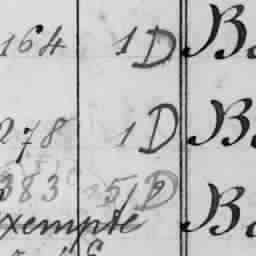 164 1 D B
278 1 D B
383 5/2 D B
xempte